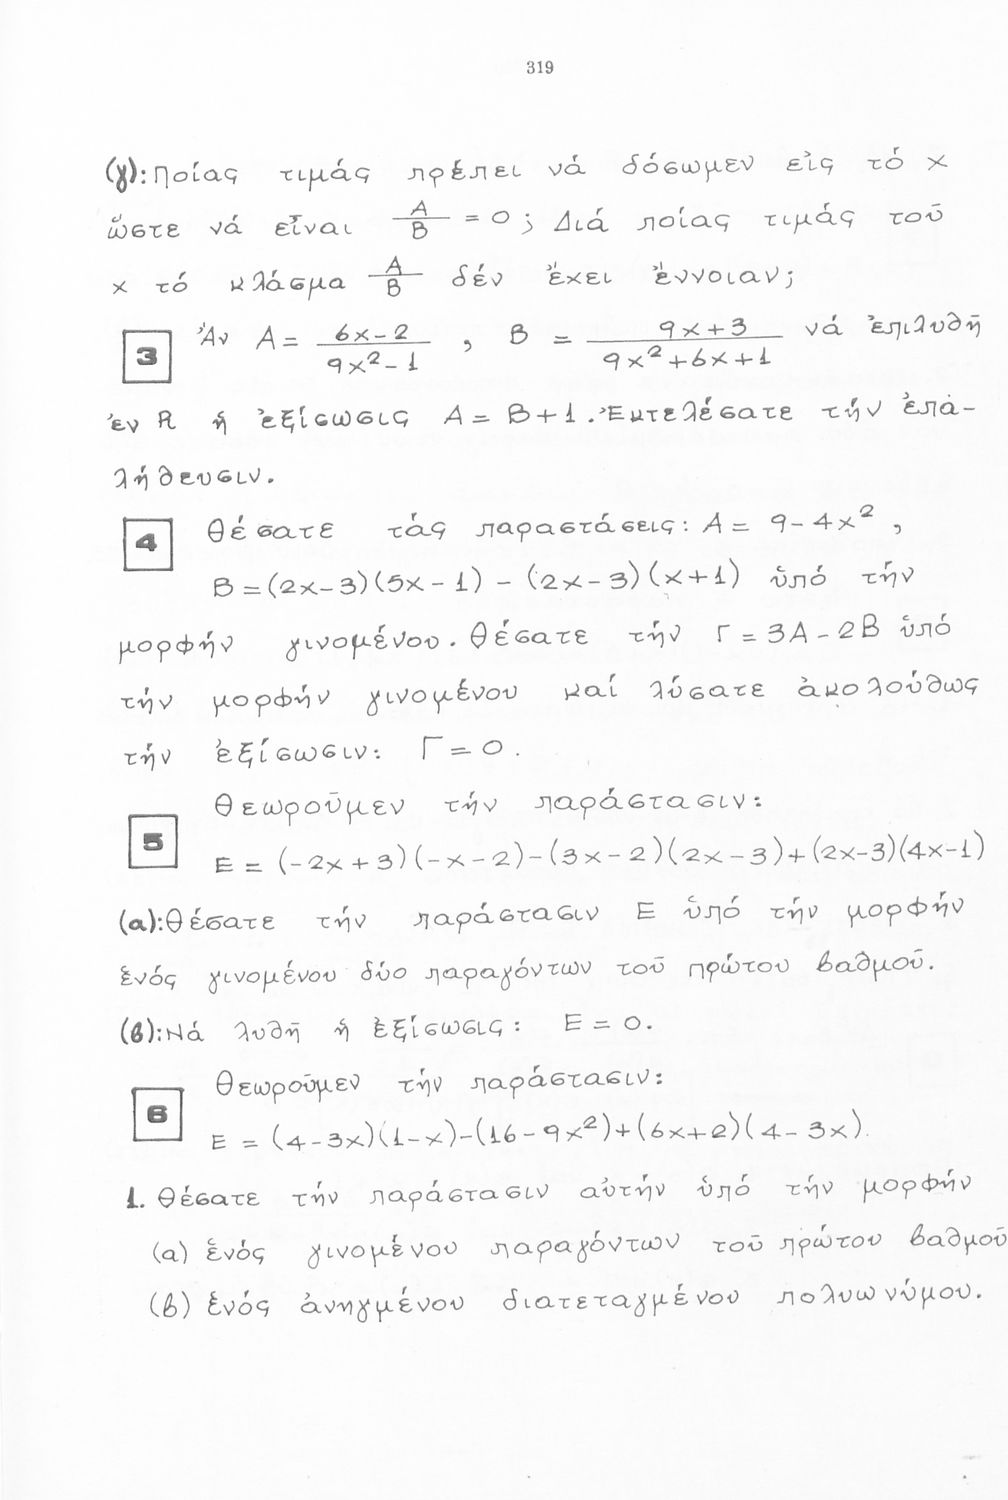 319
(γ): Ποίας τιμάς πρέπει νά δόσωμεν εἰς τό x
ὥστε νά εἶναι A/B = 0 ; Διά ποίας τιμάς τοῦ
x τό κλάσμα A/B δέν ἔχει ἔννοιαν;
3 Ἄν A = (6x-2)/(9x²-1) , B = (9x+3)/(9x²+6x+1) νά ἐπιλυθῆ
ἐν R ἡ ἐξίσωσις A = B+1. Ἐκτελέσατε τήν ἐπα-
λήθευσιν.
4 Θέσατε τάς παραστάσεις: A = 9-4x² ,
B = (2x-3)(5x-1) - (2x-3)(x+1) ὑπό τήν
μορφήν γινομένου. Θέσατε τήν Γ = 3A-2B ὑπό
τήν μορφήν γινομένου καί λύσατε ἀκολούθως
τήν ἐξίσωσιν: Γ = 0.
Θεωροῦμεν τήν παράστασιν:
5 E = (-2x+3)(-x-2)-(3x-2)(2x-3)+(2x-3)(4x-1)
(α): Θέσατε τήν παράστασιν E ὑπό τήν μορφήν
ἑνός γινομένου δύο παραγόντων τοῦ πρώτου βαθμοῦ.
(β): Νά λυθῆ ἡ ἐξίσωσις: E = 0.
Θεωροῦμεν τήν παράστασιν:
6 E = (4-3x)(1-x)-(16-9x²)+(6x+2)(4-3x).
1. Θέσατε τήν παράστασιν αὐτήν ὑπό τήν μορφήν
(α) ἑνός γινομένου παραγόντων τοῦ πρώτου βαθμοῦ
(β) ἑνός ἀνηγμένου διατεταγμένου πολυωνύμου.